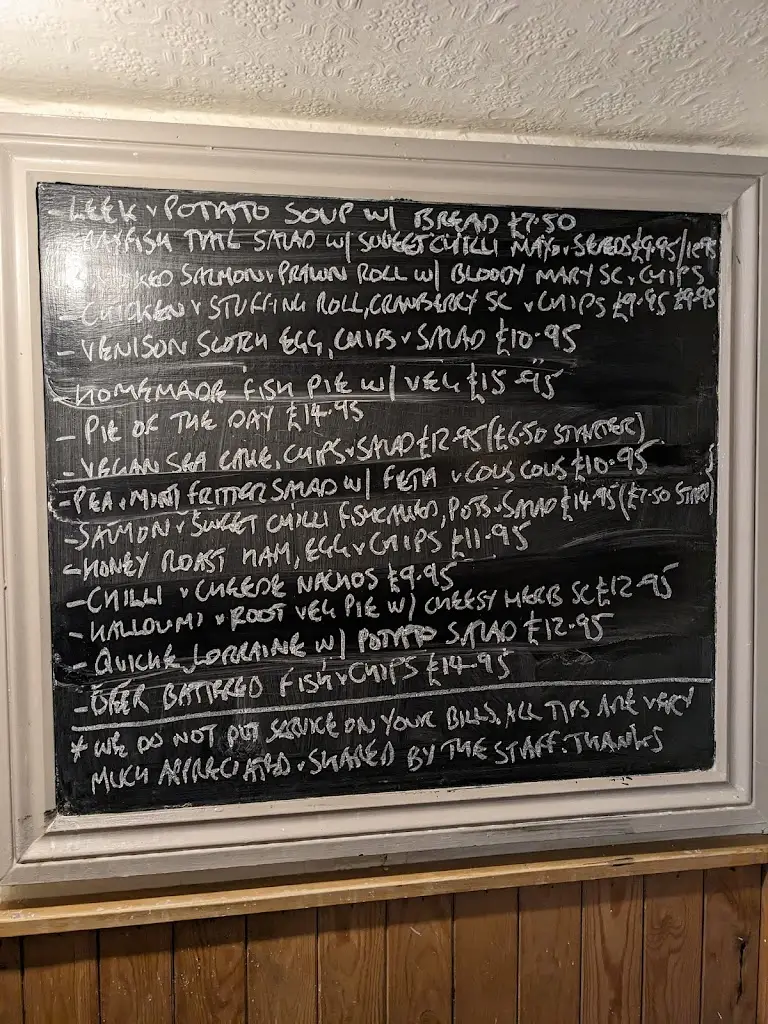 - LEEK & POTATO SOUP W/ BREAD £7.50
TAIL SALAD W/ SWEET CHILLI MAYO & SEEDS £9.95/
SMOKED SALMON & PRAWN ROLL W/ BLOODY MARY SC & CHIPS
- CHICKEN & STUFFING ROLL, CRANBERRY SC & CHIPS £9.95 £9.95
- VENISON SCOTCH EGG, CHIPS & SALAD £10.95
HOMEMADE FISH PIE W/ VEG £15.95
- PIE OF THE DAY £14.95
- VEGAN SEA CAKE, CHIPS & SALAD £12.95 (£6.50 STARTER)
- PEA & MINT FRITTER SALAD W/ FETA & COUS COUS £10.95
- SALMON & SWEET CHILLI FISHCAKES, POTS & SALAD £14.95 (£7.50 START)
- HONEY ROAST HAM, EGG & CHIPS £11.95
- CHILLI & CHEESE NACHOS £9.95
- HALLOUMI & ROOT VEG PIE W/ CHEESY HERB SC £12.95
- QUICHE LORRAINE W/ POTATO SALAD £12.95
- BEER BATTERED FISH & CHIPS £14.95
* WE DO NOT PUT SERVICE ON YOUR BILLS. ALL TIPS ARE VERY
MUCH APPRECIATED & SHARED BY THE STAFF. THANKS